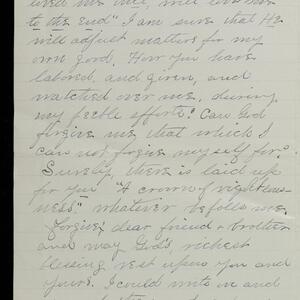 loved me once, will love me
to the end" I am sure that He
will adjust matters for my
own good. How you have
labored, and given, and
watched over me, during
my feeble efforts! Can God
forgive me that which I
can not forgive myself for?
Surely, there is laid up
for you "A crown of righteous-
ness" whatever befalls me.
Forgive, dear friend & brother
and may God's richest
blessing rest upon you and
yours. I could write on and